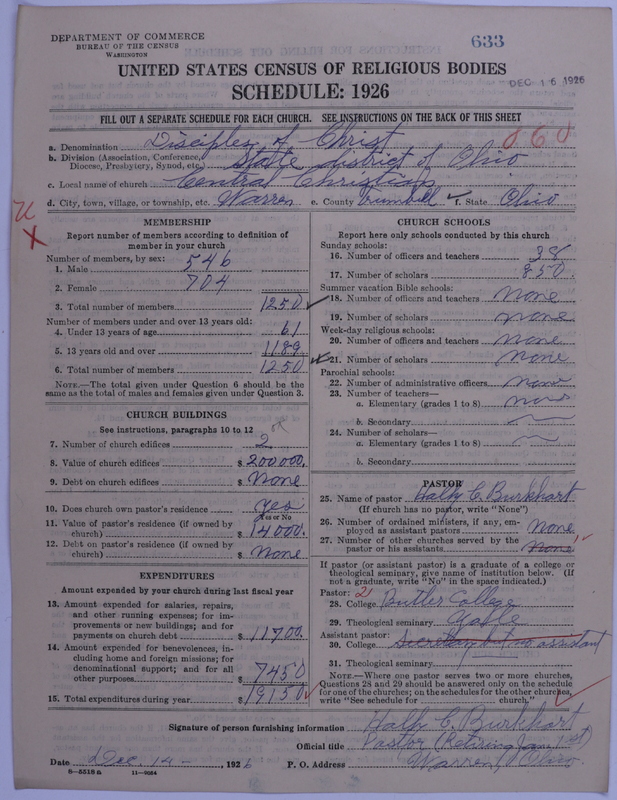 DEPARTMENT OF COMMERCE
BUREAU OF THE CENSUS
WASHINGTON
633
UNITED STATES CENSUS OF RELIGIOUS BODIES
DEC 16 1926
SCHEDULE: 1926
FILL OUT A SEPARATE SCHEDULE FOR EACH CHURCH. SEE INSTRUCTIONS ON THE BACK OF THIS SHEET
a. Denomination Disciples of Christ 060
b. Division (Association, Conference, Diocese, Presbytery, Synod, etc.) State district of Ohio
c. Local name of church Central Christian
d. City, town, village, or township, etc. Warren e. County Trumbull f. State Ohio
MEMBERSHIP
Report number of members according to definition of
member in your church
Number of members, by sex:
1. Male 546
2. Female 704
3. Total number of members 1250
Number of members under and over 13 years old:
4. Under 13 years of age 61
5. 13 years old and over 1189
6. Total number of members 1250
NOTE.—The total given under Question 6 should be the
same as the total of males and females given under Question 3.
CHURCH BUILDINGS
See instructions, paragraphs 10 to 12
7. Number of church edifices 2
8. Value of church edifices $ 200000.
9. Debt on church edifices $ None
10. Does church own pastor's residence yes
Yes or No
11. Value of pastor's residence (if owned by
church) $ 14000.
12. Debt on pastor's residence (if owned by
church) $ None
EXPENDITURES
Amount expended by your church during last fiscal year
13. Amount expended for salaries, repairs,
and other running expenses; for im-
provements or new buildings; and for
payments on church debt $ 11700.
14. Amount expended for benevolences, in-
cluding home and foreign missions; for
denominational support; and for all
other purposes $ 7450
15. Total expenditures during year $ 19150
CHURCH SCHOOLS
Report here only schools conducted by this church
Sunday schools:
16. Number of officers and teachers 38
17. Number of scholars 850
Summer vacation Bible schools:
18. Number of officers and teachers None
19. Number of scholars None
Week-day religious schools:
20. Number of officers and teachers None
21. Number of scholars None
Parochial schools:
22. Number of administrative officers None
23. Number of teachers—
a. Elementary (grades 1 to 8) None
b. Secondary
24. Number of scholars—
a. Elementary (grades 1 to 8)
b. Secondary
PASTOR
25. Name of pastor C. Burkhart
(If church has no pastor, write "None")
26. Number of ordained ministers, if any, em-
ployed as assistant pastors None
27. Number of other churches served by the
pastor or his assistants None
If pastor (or assistant pastor) is a graduate of a college or
theological seminary, give name of institution below. (If
not a graduate, write "No" in the space indicated.)
Pastor: 2
28. College Butler College
29. Theological seminary
Assistant pastor:
30. College Secretary but no assistant
31. Theological seminary
NOTE.—Where one pastor serves two or more churches,
Questions 28 and 29 should be answered only on the schedule
for one of the churches; on the schedules for the other churches,
write "See schedule for church."
Signature of person furnishing information C. Burkhart
Official title Pastor (Retiring Jan 1st)
Date Dec. 14 — , 1926 P. O. Address Warren, Ohio.
8—5518 a 11—9084